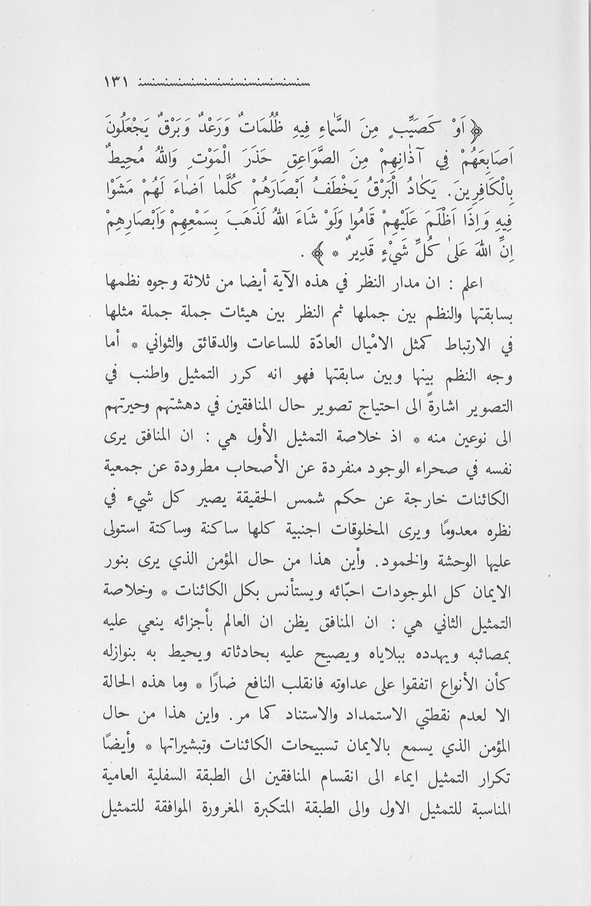 ١٣١
﴿ اَوْ كَصَيِّبٍ مِنَ السَّمَاءِ فِيهِ ظُلُمَاتٌ وَرَعْدٌ وَبَرْقٌ يَجْعَلُونَ
اَصَابِعَهُمْ فِي آذَانِهِمْ مِنَ الصَّوَاعِقِ حَذَرَ الْمَوْتِ وَاللهُ مُحِيطٌ
بِالْكَافِرِينَ. يَكَادُ الْبَرْقُ يَخْطَفُ اَبْصَارَهُمْ كُلَّمَا اَضَاءَ لَهُمْ مَشَوْا
فِيهِ وَاِذَا اَظْلَمَ عَلَيْهِمْ قَامُوا وَلَوْ شَاءَ اللهُ لَذَهَبَ بِسَمْعِهِمْ وَاَبْصَارِهِمْ
اِنَّ اللهَ عَلٰى كُلِّ شَيْءٍ قَدِيرٌ * ﴾ .
اعلم : ان مدار النظر في هذه الآية أيضا من ثلاثة وجوه نظمها
بسابقتها والنظم بين جملها ثم النظر بين هيئات جملة جملة مثلها
في الارتباط كمثل الامْيال العادّة للساعات والدقائق والثواني * أما
وجه النظم بينها وبين سابقتها فهو انه كرر التمثيل واطنب في
التصوير اشارةً الى احتياج تصوير حال المنافقين في دهشتهم وحيرتهم
الى نوعين منه * اذ خلاصة التمثيل الأول هي : ان المنافق يرى
نفسه في صحراء الوجود منفردة عن الأصحاب مطرودة عن جمعية
الكائنات خارجة عن حكم شمس الحقيقة يصير كل شيء في
نظره معدومًا ويرى المخلوقات اجنبية كلها ساكنة وساكتة استولى
عليها الوحشة والخمود. وأين هذا من حال المؤمن الذي يرى بنور
الايمان كل الموجودات احبّائه ويستأنس بكل الكائنات * وخلاصة
التمثيل الثاني هي : ان المنافق يظن ان العالم بأجزائه ينعي عليه
بمصائبه ويهدده ببلاياه ويصيح عليه بحادثاته ويحيط به بنوازله
كأن الأنواع اتفقوا على عداوته فانقلب النافع ضارًا * وما هذه الحالة
الا لعدم نقطتي الاستمداد والاستناد كما مر. واين هذا من حال
المؤمن الذي يسمع بالايمان تسبيحات الكائنات وتبشيراتها * وأيضًا
تكرار التمثيل ايماء الى انقسام المنافقين الى الطبقة السفلية العامية
المناسبة للتمثيل الاول والى الطبقة المتكبرة المغرورة الموافقة للتمثيل